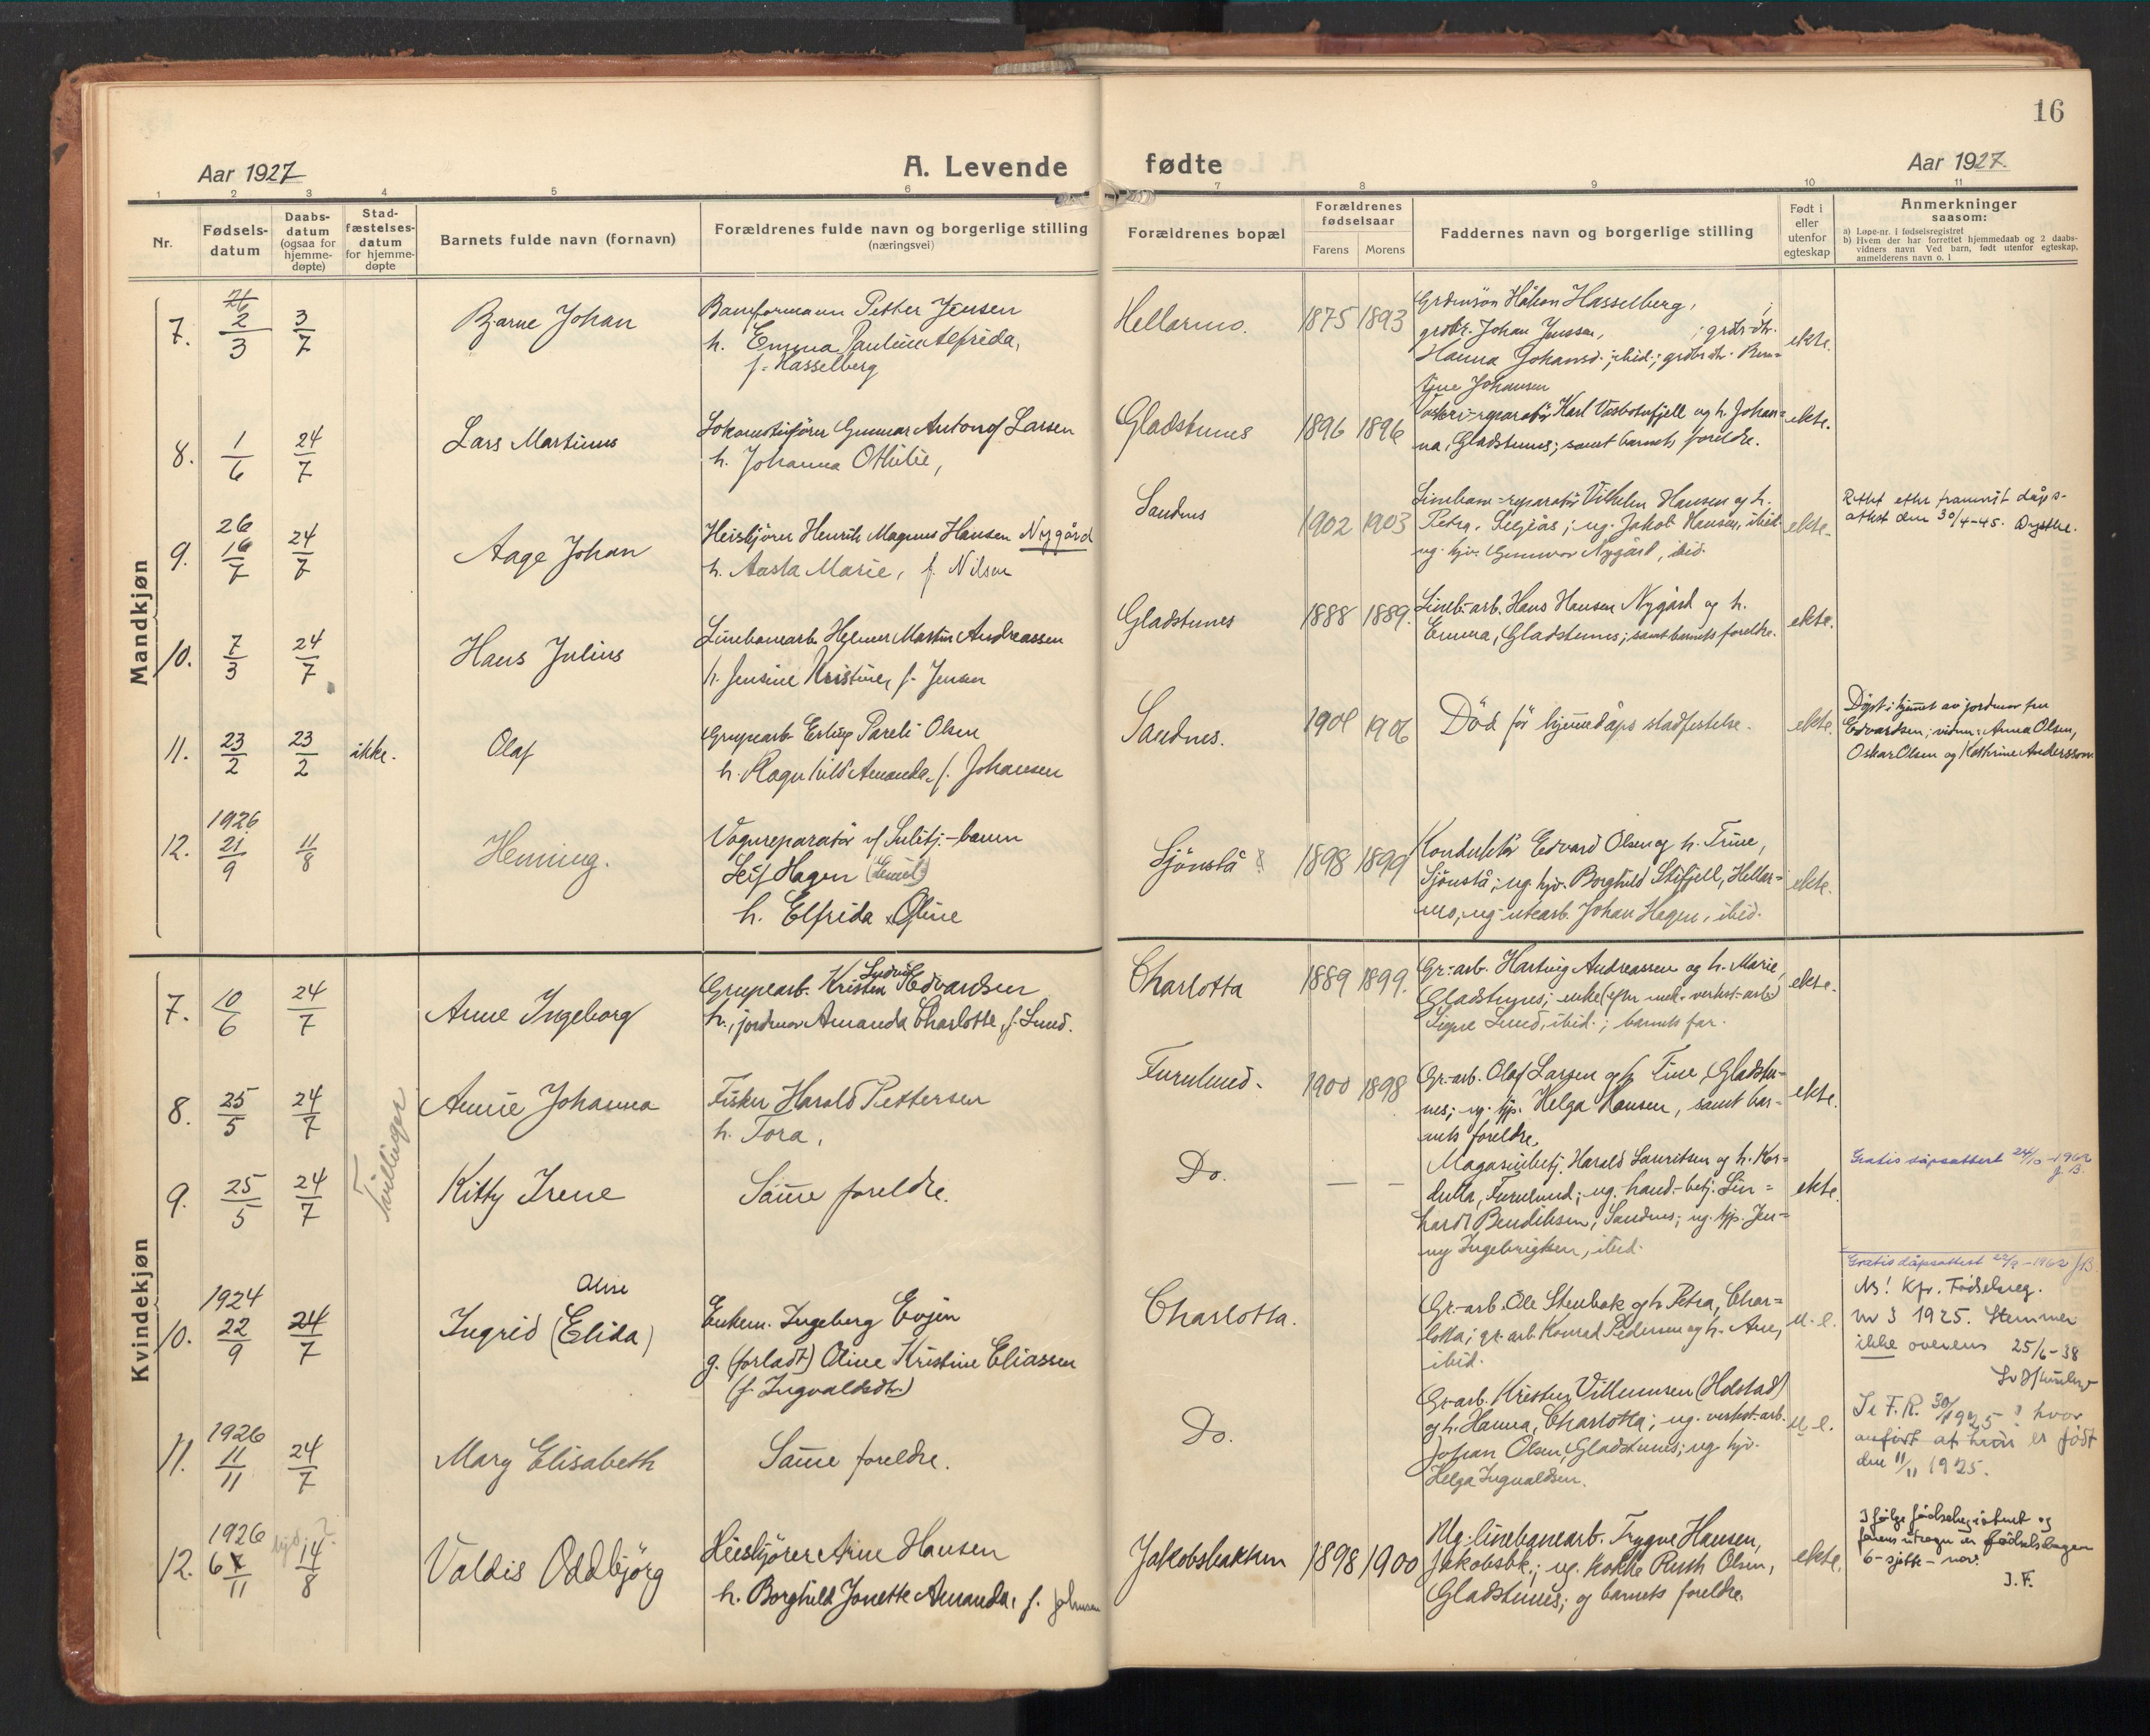 16
Aar 1927
A. Levende fødte
Aar 1927.
1 2 3 4 5 6 7 8 9 10 11
Nr.
Fødsels-
datum
Daabs-
datum
(ogsaa for
hjemme-
døpte)
Stad-
fæstelses-
datum
for hjemme-
døpte
Barnets fulde navn (fornavn)
Forældrenes fulde navn og borgerlige stilling
(næringsvei)
Forældrenes bopæl
Forældrenes
fødselsaar
Farens Morens
Faddernes navn og borgerlige stilling
Født i
eller
utenfor
egteskap
Anmerkninger
saasom:
a) Løpe-nr. i fødselsregistret
b) Hvem der har forrettet hjemmedaab og 2 daabs-
vidners navn Ved barn, født utenfor egteskap,
anmelderens navn o. l
Mandkjøn
7. 2/3 3/7 Bjarne Johan
Petter Jensen
h. Emma Pauline Alfrida,
f. Hasselberg
Hellarmo. 1875 1893
Håkon Hasselberg,
grdbr. Johan Jenssen, ; grdbr. dtr.
Hanna Johansd. ; ibid.; grdbr. dtr.
Johansen
ekte.
8. 1/6 24/7 Lars Martinus
Lokomotivfører Gunnar Antonof Larsen
h. Johanna Othilie,
Gladstunes 1896 1896
Karl Vasbotnfjell og h. Johan=
na, Gladstunes; samt barnets foreldre.
ekte.
9. 26 16/7 24/7 Aage Johan
Heiskjører Henrik Magnus Hansen Nygård
h. Aasta Marie, f. Nilsen
Sandnes 1902 1903
Linebane-reparatør Vilhelm Hansen og h.
Petra, ; ug. Jakob Hansen, ibid.
ug. hjv. Gunnvor Nygård, ibid.
ekte.
Rettet efter dåps-
attest den 30/4-45.
10. 7/3 24/7 Hans Julius
Linebanearb. Helmer Martin Andreassen
h. Jensine Kristine, f. Jensen
Gladstunes 1888 1889.
Lineb-arb. Hans Hansen Nygård og h.
Emma, Gladstunes; samt barnets foreldre.
ekte.
11. 23/2 23/2 ikke. Olaf
Grupearb. Erling Pareli Olsen
h. Ragnhild Amanda, f. Johansen
Sandnes. 1904 1906
Død før hjemmedåps stadfestelse.
ekte.
Døpt i hjemmet av jordmor fru
Edvardsen; vidner: Anna Olsen,
Oskar Olsen og Kathrine Anderssen.
12. 1926 21/9 11/8 Henning.
Vognreparatør v/ Sulitj.-banen
Leif Hagen (Emil)
h. Elfrida Oline
Sjønstå 1898 1899
Konduktør Edvard Olsen og h. Trine,
Sjønstå; ug. hjv. Borghild Stifjell, Hellar=
mo, ug. utearb. Johan Hagen, ibid.
ekte.
Kvindekjøn
7. 10/6 24/7 Anne Ingeborg
Ludvik
Grupearb. Kristen Edvardsen
h., jordmor Amanda Charlotte, f. Lund.
Charlotta 1889 1899.
Gr.-arb. Hartvig Andreassen og h. Marie,
Gladstunes; enke (efter mek. verkst-arb.)
Signe Lund, ibid.; barnets far.
ekte.
Tvillinger
8. 25/5 24/7 Annie Johanna
Fisker Harald Pettersen
h. Tora,
Furulund. 1900 1898
Gr.-arb. Olaf Larsen og h. Tine, Gladstu-
nes; ug. tjp. Helga Hansen, samt bar-
nets foreldre.
ekte.
9. 25/5 24/7 Kitty Irene
Samme foreldre.
Do. — —
Magasinbetj. Harald Lauritsen og h. Kor-
nelia, Furulund; ug. hand.-betj. Lin=
hardt Bendiksen, Sandnes; ug. tjp. Jen-
ny Ingebrigtsen, ibid.
ekte.
Gratis dåpsattest 24/10-1962
J.B.
10. 1924 22/9 24/7
Oline
Ingrid (Elida)
Enkem. Ingeberg Evjen
g. (forladt) Oline Kristine Eliassen
(f. Ingvaldsdtr.)
Charlotta.
Gr.-arb. Ole Stenbak og h. Petra, Char=
lotta; gr.-arb. Konrad Pedersen og h. Ane,
ibid.
u. e.
Gratis dåpsattest 22/9-1962 J.B.
NB! Kfr. Fødselsreg.
nr 3 1925. Stemmer
ikke overens 25/6-38
11. 1926 11/11 24/7 Mary Elisabeth
Samme foreldre.
Do.
Gr-arb. Kristen Villumsen (Holstad)
og h. Hanna, Charlotta; ug. verkst-arb.
Johan Olsen, Gladstunes; ug. hjv.
Helga Ingvaldsen.
u. e.
Se F.R. 30/1925 ? hvor
anført at hun er født
den 11/11 1925.
12. 1926 6/11 14/8 Valdis Oddbjørg
Heiskjører Arne Hansen
h. Borghild Jonette Amanda, f. Johnsen
Jakobsbakken 1898 1900
Ug. linebanearb. Trygve Hansen,
Jakobsbk.; ug. kokke Ruth Olsen,
Gladstunes; og barnets foreldre.
ekte.
I følge fødselsregisteret og
farens utsagn er fødselsdagen
6-sjette-nov.
J. F.